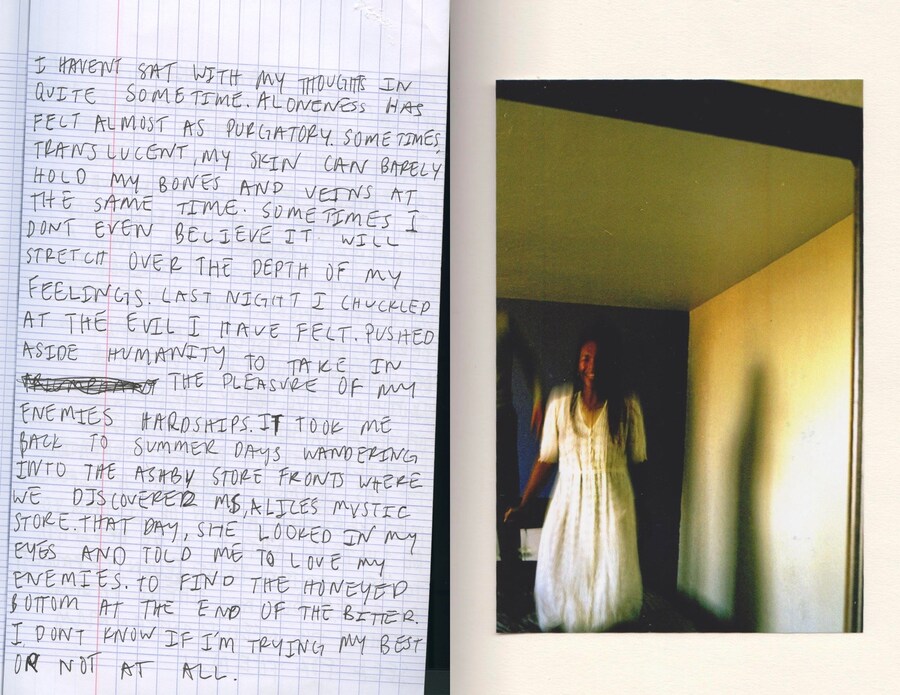 I HAVENT SAT WITH MY THOUGHTS IN
QUITE SOMETIME. ALONENESS HAS
FELT ALMOST AS PURGATORY. SOMETIMES,
TRANSLUCENT, MY SKIN CAN BARELY
HOLD MY BONES AND VEINS AT
THE SAME TIME. SOMETIMES I
DONT EVEN BELIEVE IT WILL
STRETCH OVER THE DEPTH OF MY
FEELINGS. LAST NIGHT I CHUCKLED
AT THE EVIL I HAVE FELT. PUSHED
ASIDE HUMANITY TO TAKE IN
THE PLEASURE OF MY
ENEMIES HARDSHIPS. IT TOOK ME
BACK TO SUMMER DAYS WANDERING
INTO THE ASHBY STORE FRONTS WHERE
WE DISCOVERED MS, ALICES MYSTIC
STORE. THAT DAY, SHE LOOKED IN MY
EYES AND TOLD ME TO LOVE MY
ENEMIES. TO FIND THE HONEYED
BOTTOM AT THE END OF THE BITTER.
I DONT KNOW IF I'M TRYING MY BEST
OR NOT AT ALL.